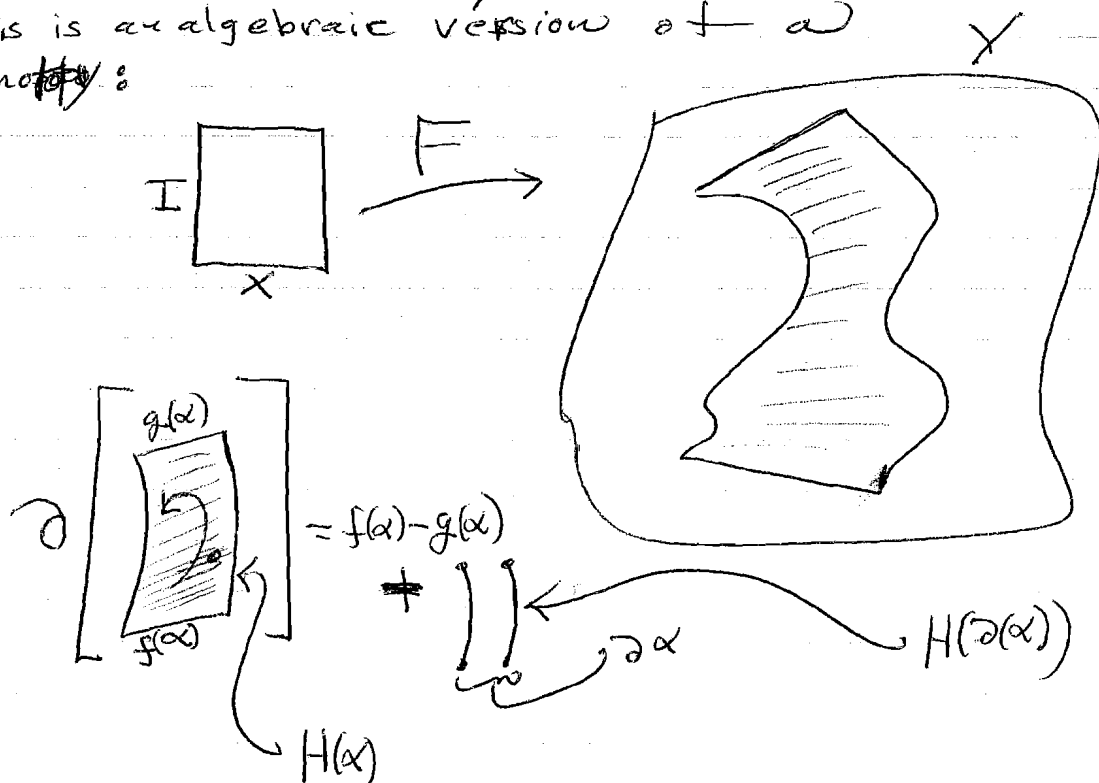 is is an algebraic version of a
Y
F
I
X
g(α)
∂ [ ] = f(α) - g(α)
f(α)
+
∂α
H(∂(α))
H(α)